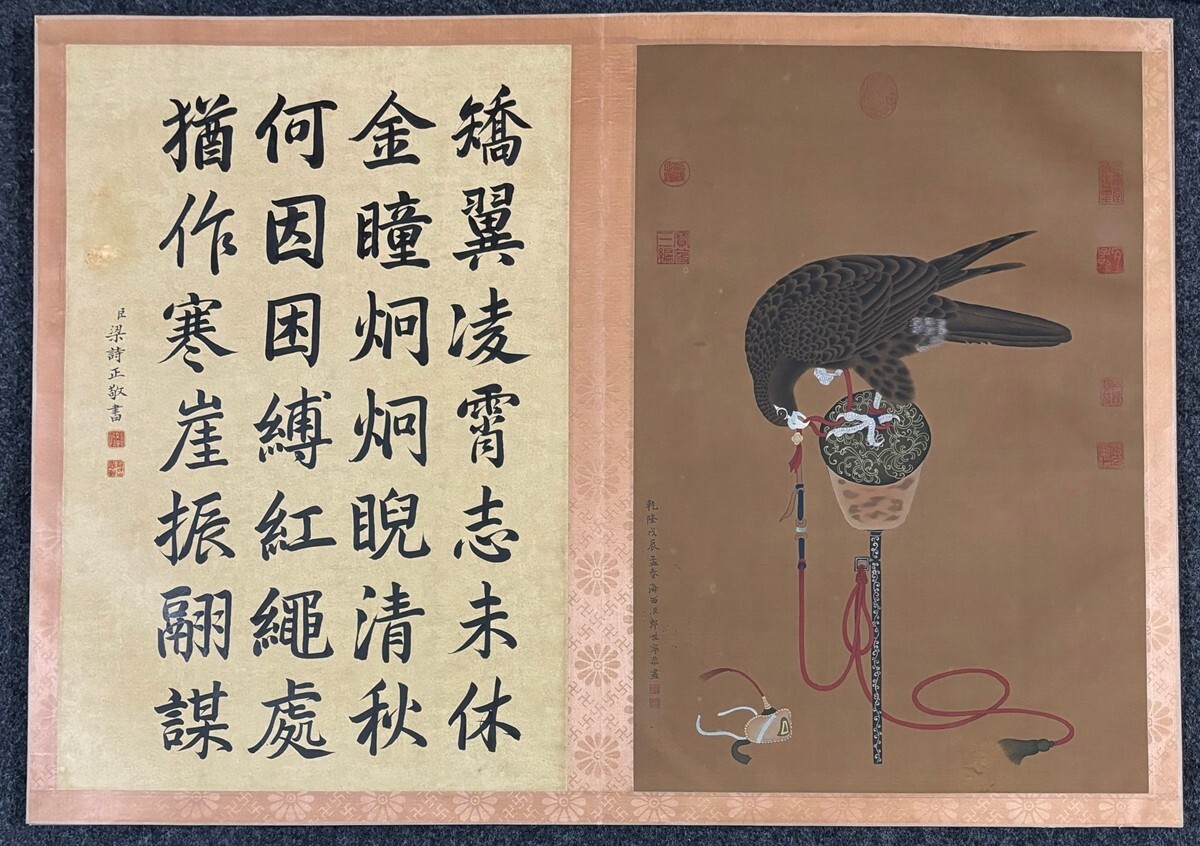 矯翼凌霄志未休
金瞳炯炯睨清秋
何因困縛紅繩處
猶作寒崖振翮謀
臣梁詩正敬書
乾隆戊辰孟春海西臣郎世寧恭畫